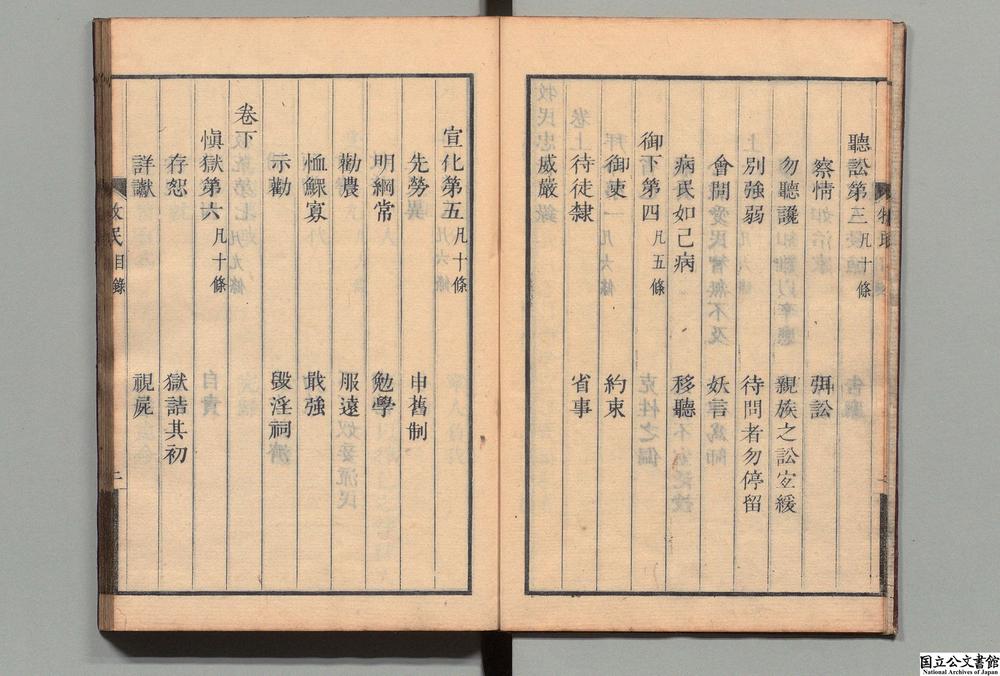 聽訟第三凡十條
察情　弭訟
勿聽讒　親族之訟宜緩
別強弱　待問者勿停留
會問　妖言爲師
病民如己病　移聽
御下第四凡五條
御吏　約束
待徒隸　省事
威嚴
宣化第五凡十條
先勞　申舊制
明綱常　勉學
勸農　服遠
恤鰥寡　戢強
示勸　毀淫祠
卷下
愼獄第六凡十條
存恕　獄詰其初
詳讞　視屍
牧民　目錄　二
国立公文書館
National Archives of Japan